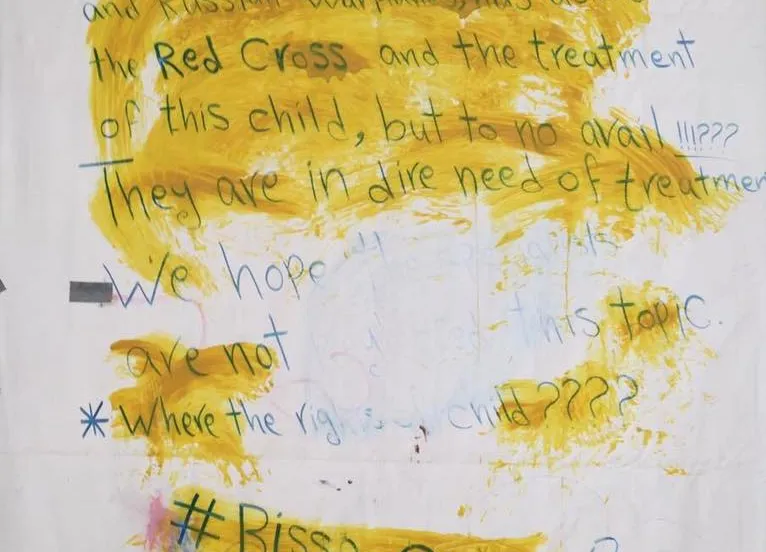 and Russian warplanes,
the Red Cross and the treatment
of this child, but to no avail !!!???
They are in dire need of treatmen
We hope
are not this topic.
* Where the rig child ????
#